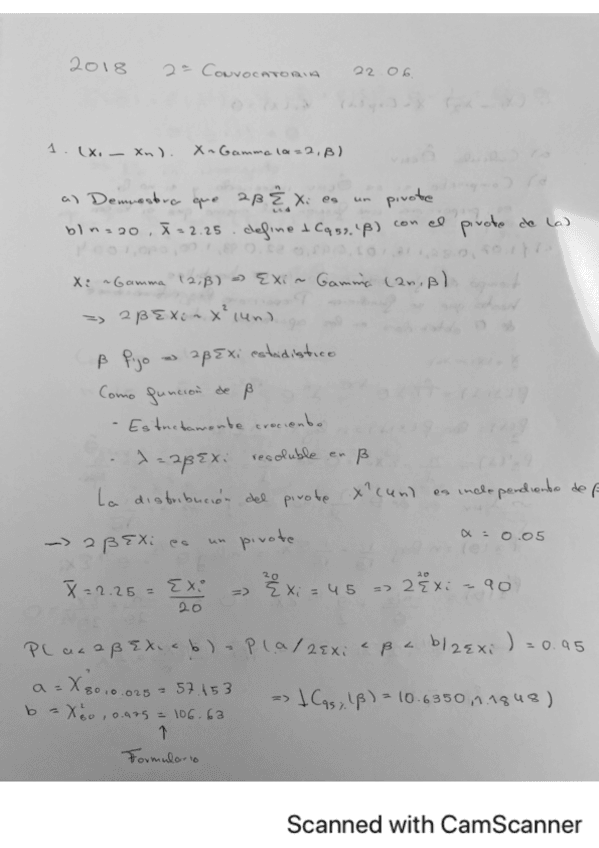 2018 2ª CONVOCATORIA 22.06
1. (X₁ — Xn). X ~ Gamma (α = 2, β)
a) Demuestra que 2β Σⁿᵢ₌₁ Xi es un pivote
b) n = 20, X̄ = 2.25. define IC95%(β) con el pivote de (a)
Xi ~ Gamma (2, β) => ΣXi ~ Gamma (2n, β)
=> 2βΣXi ~ X²(4n)
β fijo => 2βΣXi estadístico
Como función de β
- Estrictamente creciente
- λ = 2βΣXi resoluble en β
La distribución del pivote X²(4n) es independiente de β
—> 2βΣXi es un pivote α = 0.05
X̄ = 2.25 = ΣXi/20 => Σ²⁰ Xi = 45 => 2Σ²⁰ Xi = 90
P(a < 2βΣXi < b) = P(a/2ΣXi < β < b/2ΣXi) = 0.95
a = X²80,0.025 = 57.153 => IC95%(β) = (0.6350, 1.1848)
b = X²80,0.975 = 106.63
↑
Formulario
Scanned with CamScanner